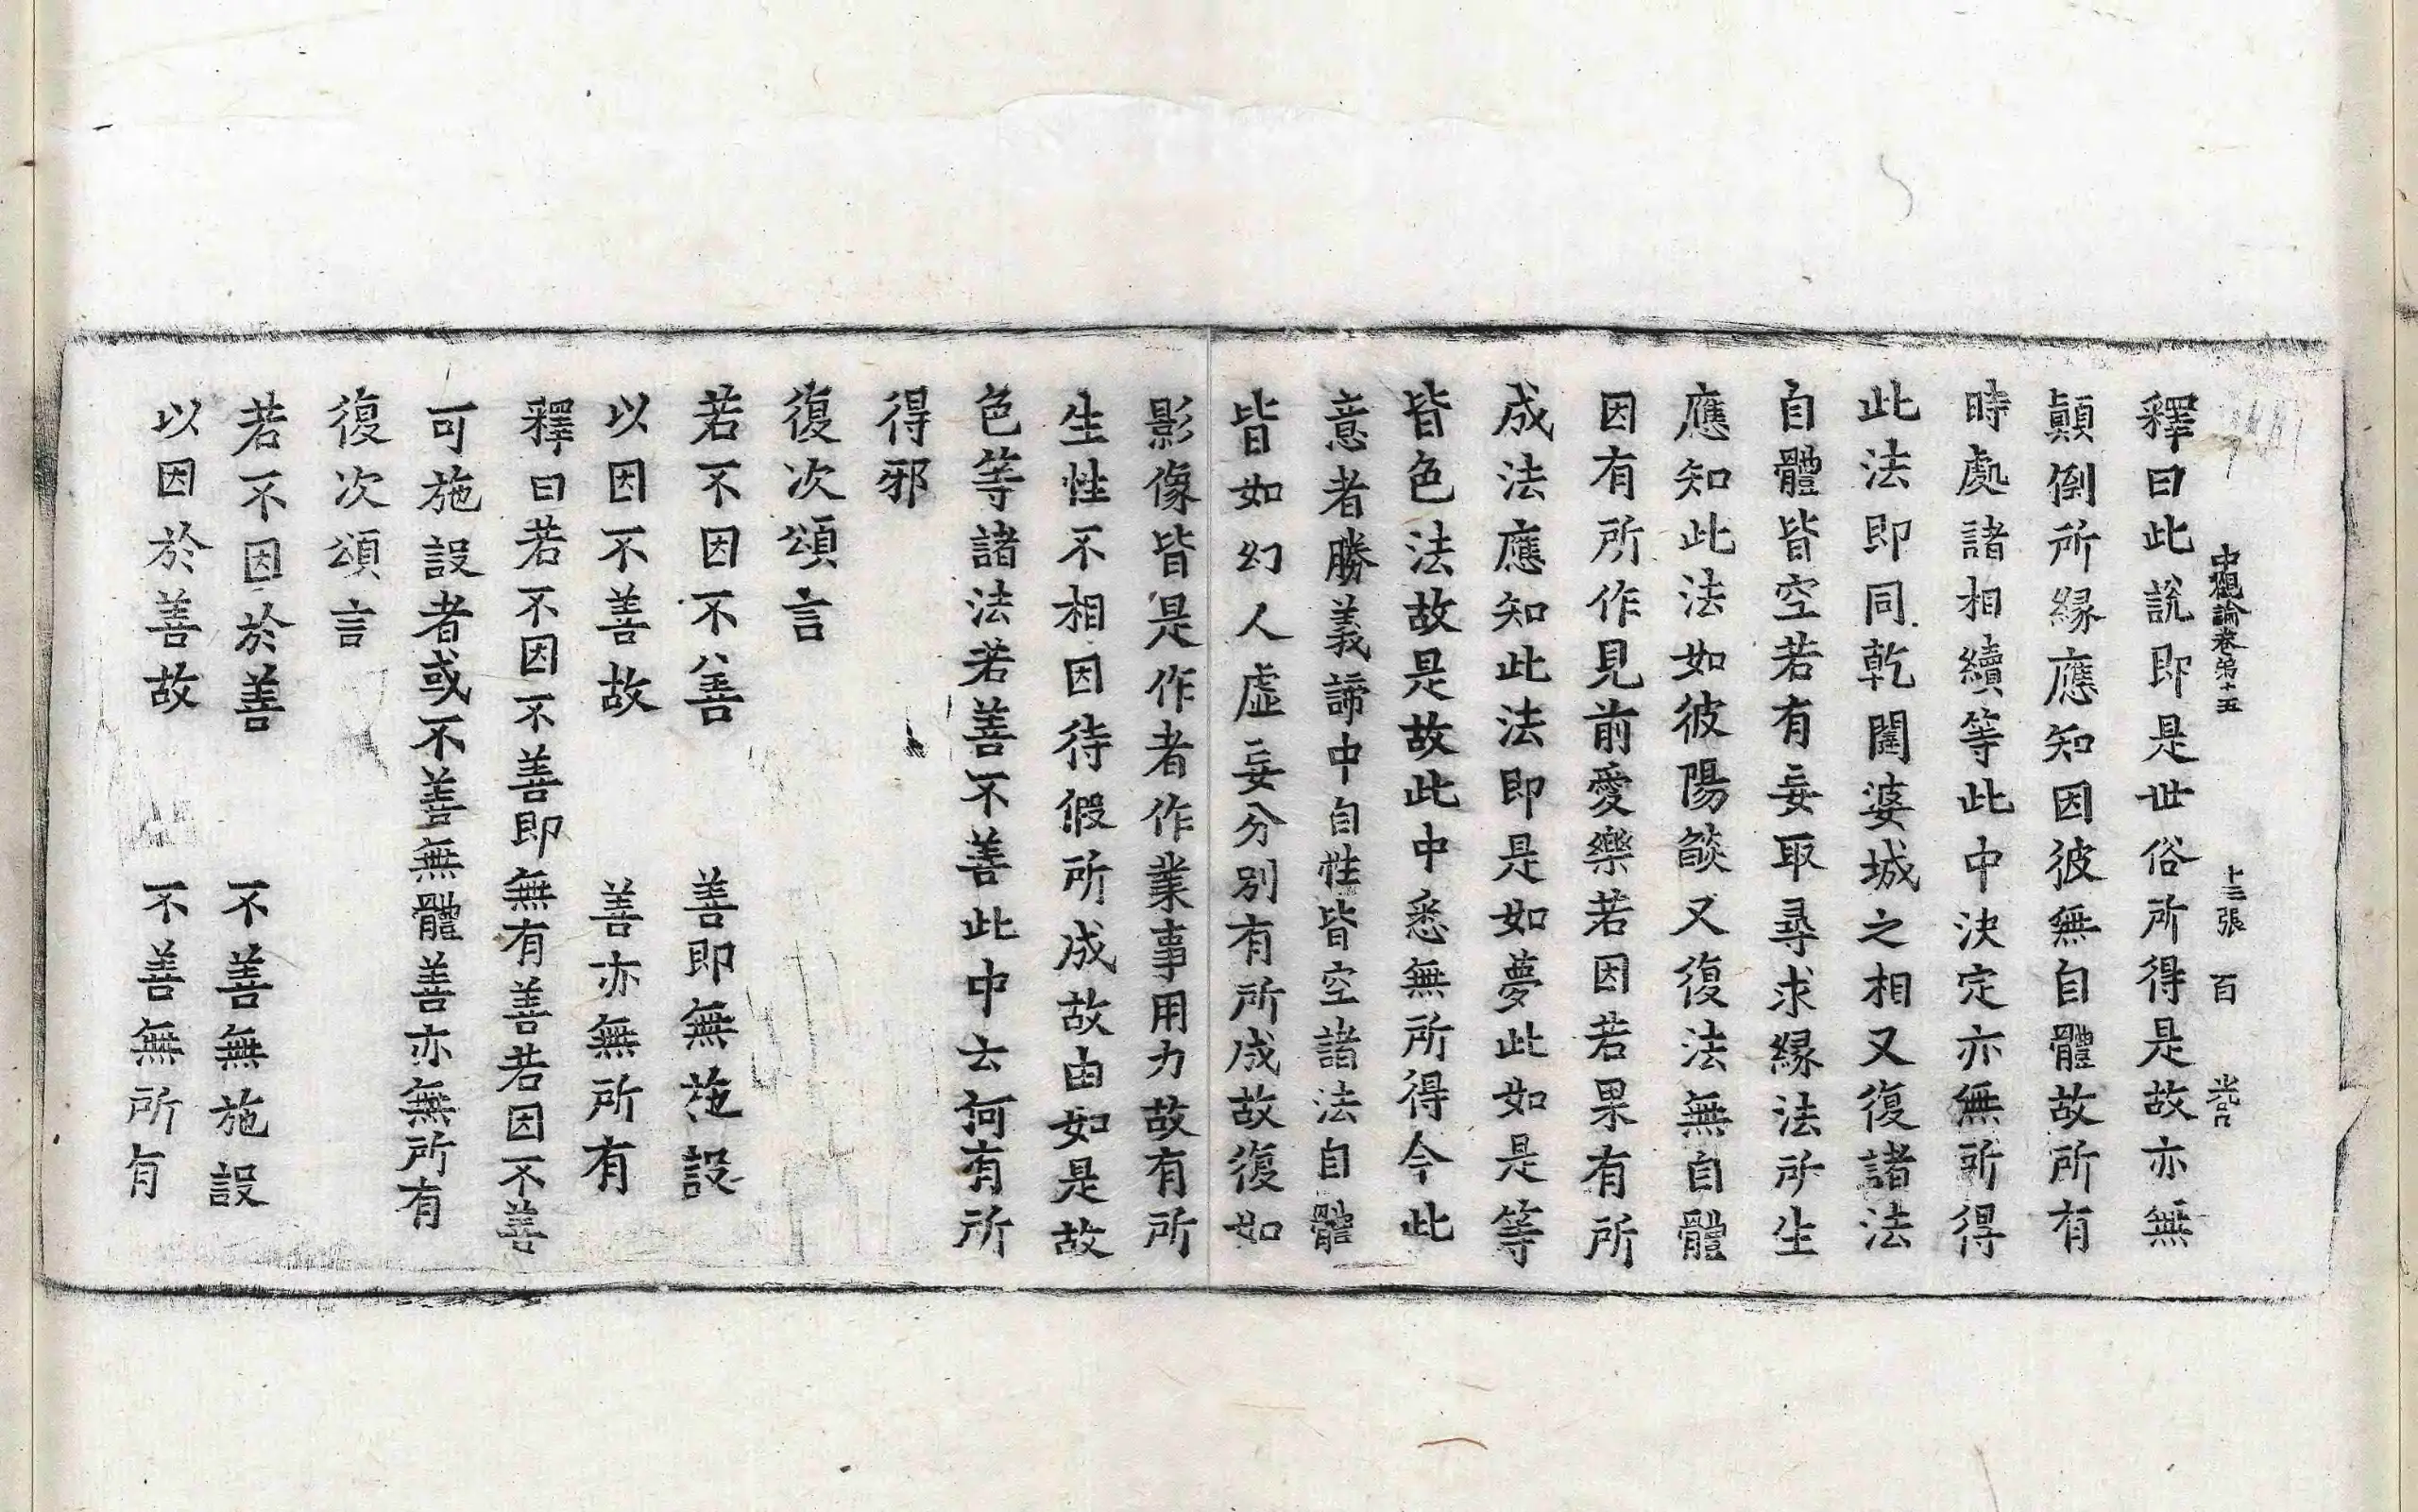 中觀論卷第十五 十三張 百
釋曰此說即是世俗所得是故亦無
顛倒所緣應知因彼無自體故所有
時處諸相續等此中決定亦無所得
此法即同乾闥婆城之相又復諸法
自體皆空若有妄取尋求緣法所生
應知此法如彼陽燄又復法無自體
因有所作見前愛樂若因若果有所
成法應知此法即是如夢此如是等
皆色法故是故此中悉無所得今此
意者勝義諦中自性皆空諸法自體
皆如幻人虛妄分別有所成故復如
影像皆是作者作業事用力故有所
生性不相因待假所成故由如是故
色等諸法若善不善此中云何有所
得邪
復次頌言
若不因不善 善即無施設
以因不善故 善亦無所有
釋曰若不因不善即無有善若因不善
可施設者或不善無體善亦無所有
復次頌言
若不因於善 不善無施設
以因於善故 不善無所有